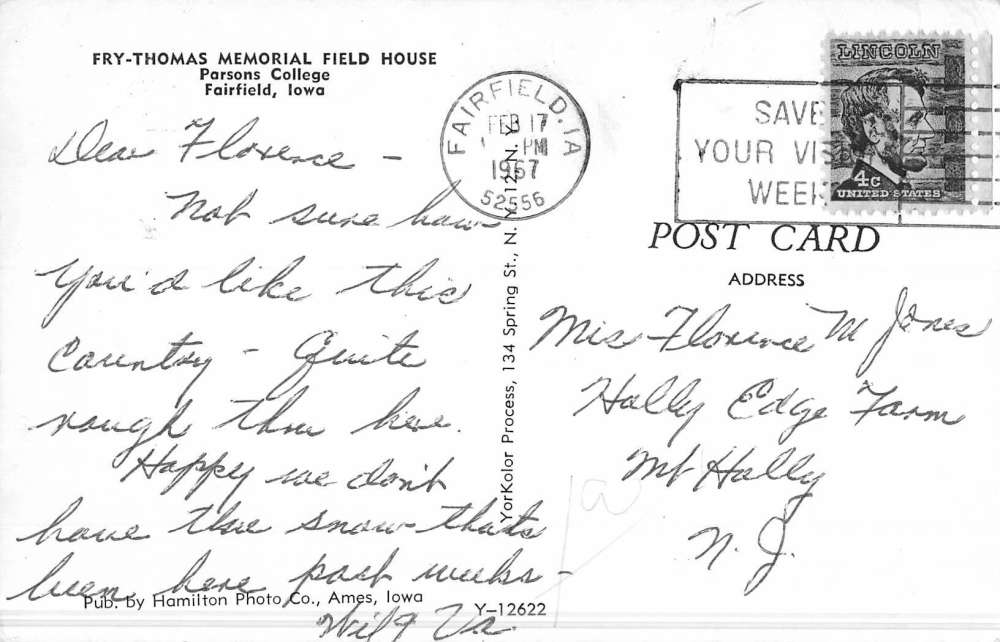 FRY-THOMAS MEMORIAL FIELD HOUSE
Parsons College
Fairfield, Iowa
Dear Florence –
Not sure how
you'd like this
Country – Quite
rough thru here.
Happy we don't
have the snow thats
been here past weeks –
Pub. by Hamilton Photo Co., Ames, Iowa
Y–12622
YorKolor Process, 134 Spring St., N. Y. 12, N. Y.
FAIRFIELD, IA
FEB 17
PM
1967
52556
SAVE
YOUR VIS
WEEK
LINCOLN
4c
UNITED STATES
POST CARD
ADDRESS
Mrs Florence M Jones
Holly Edge Farm
Mt Holly
N. J.